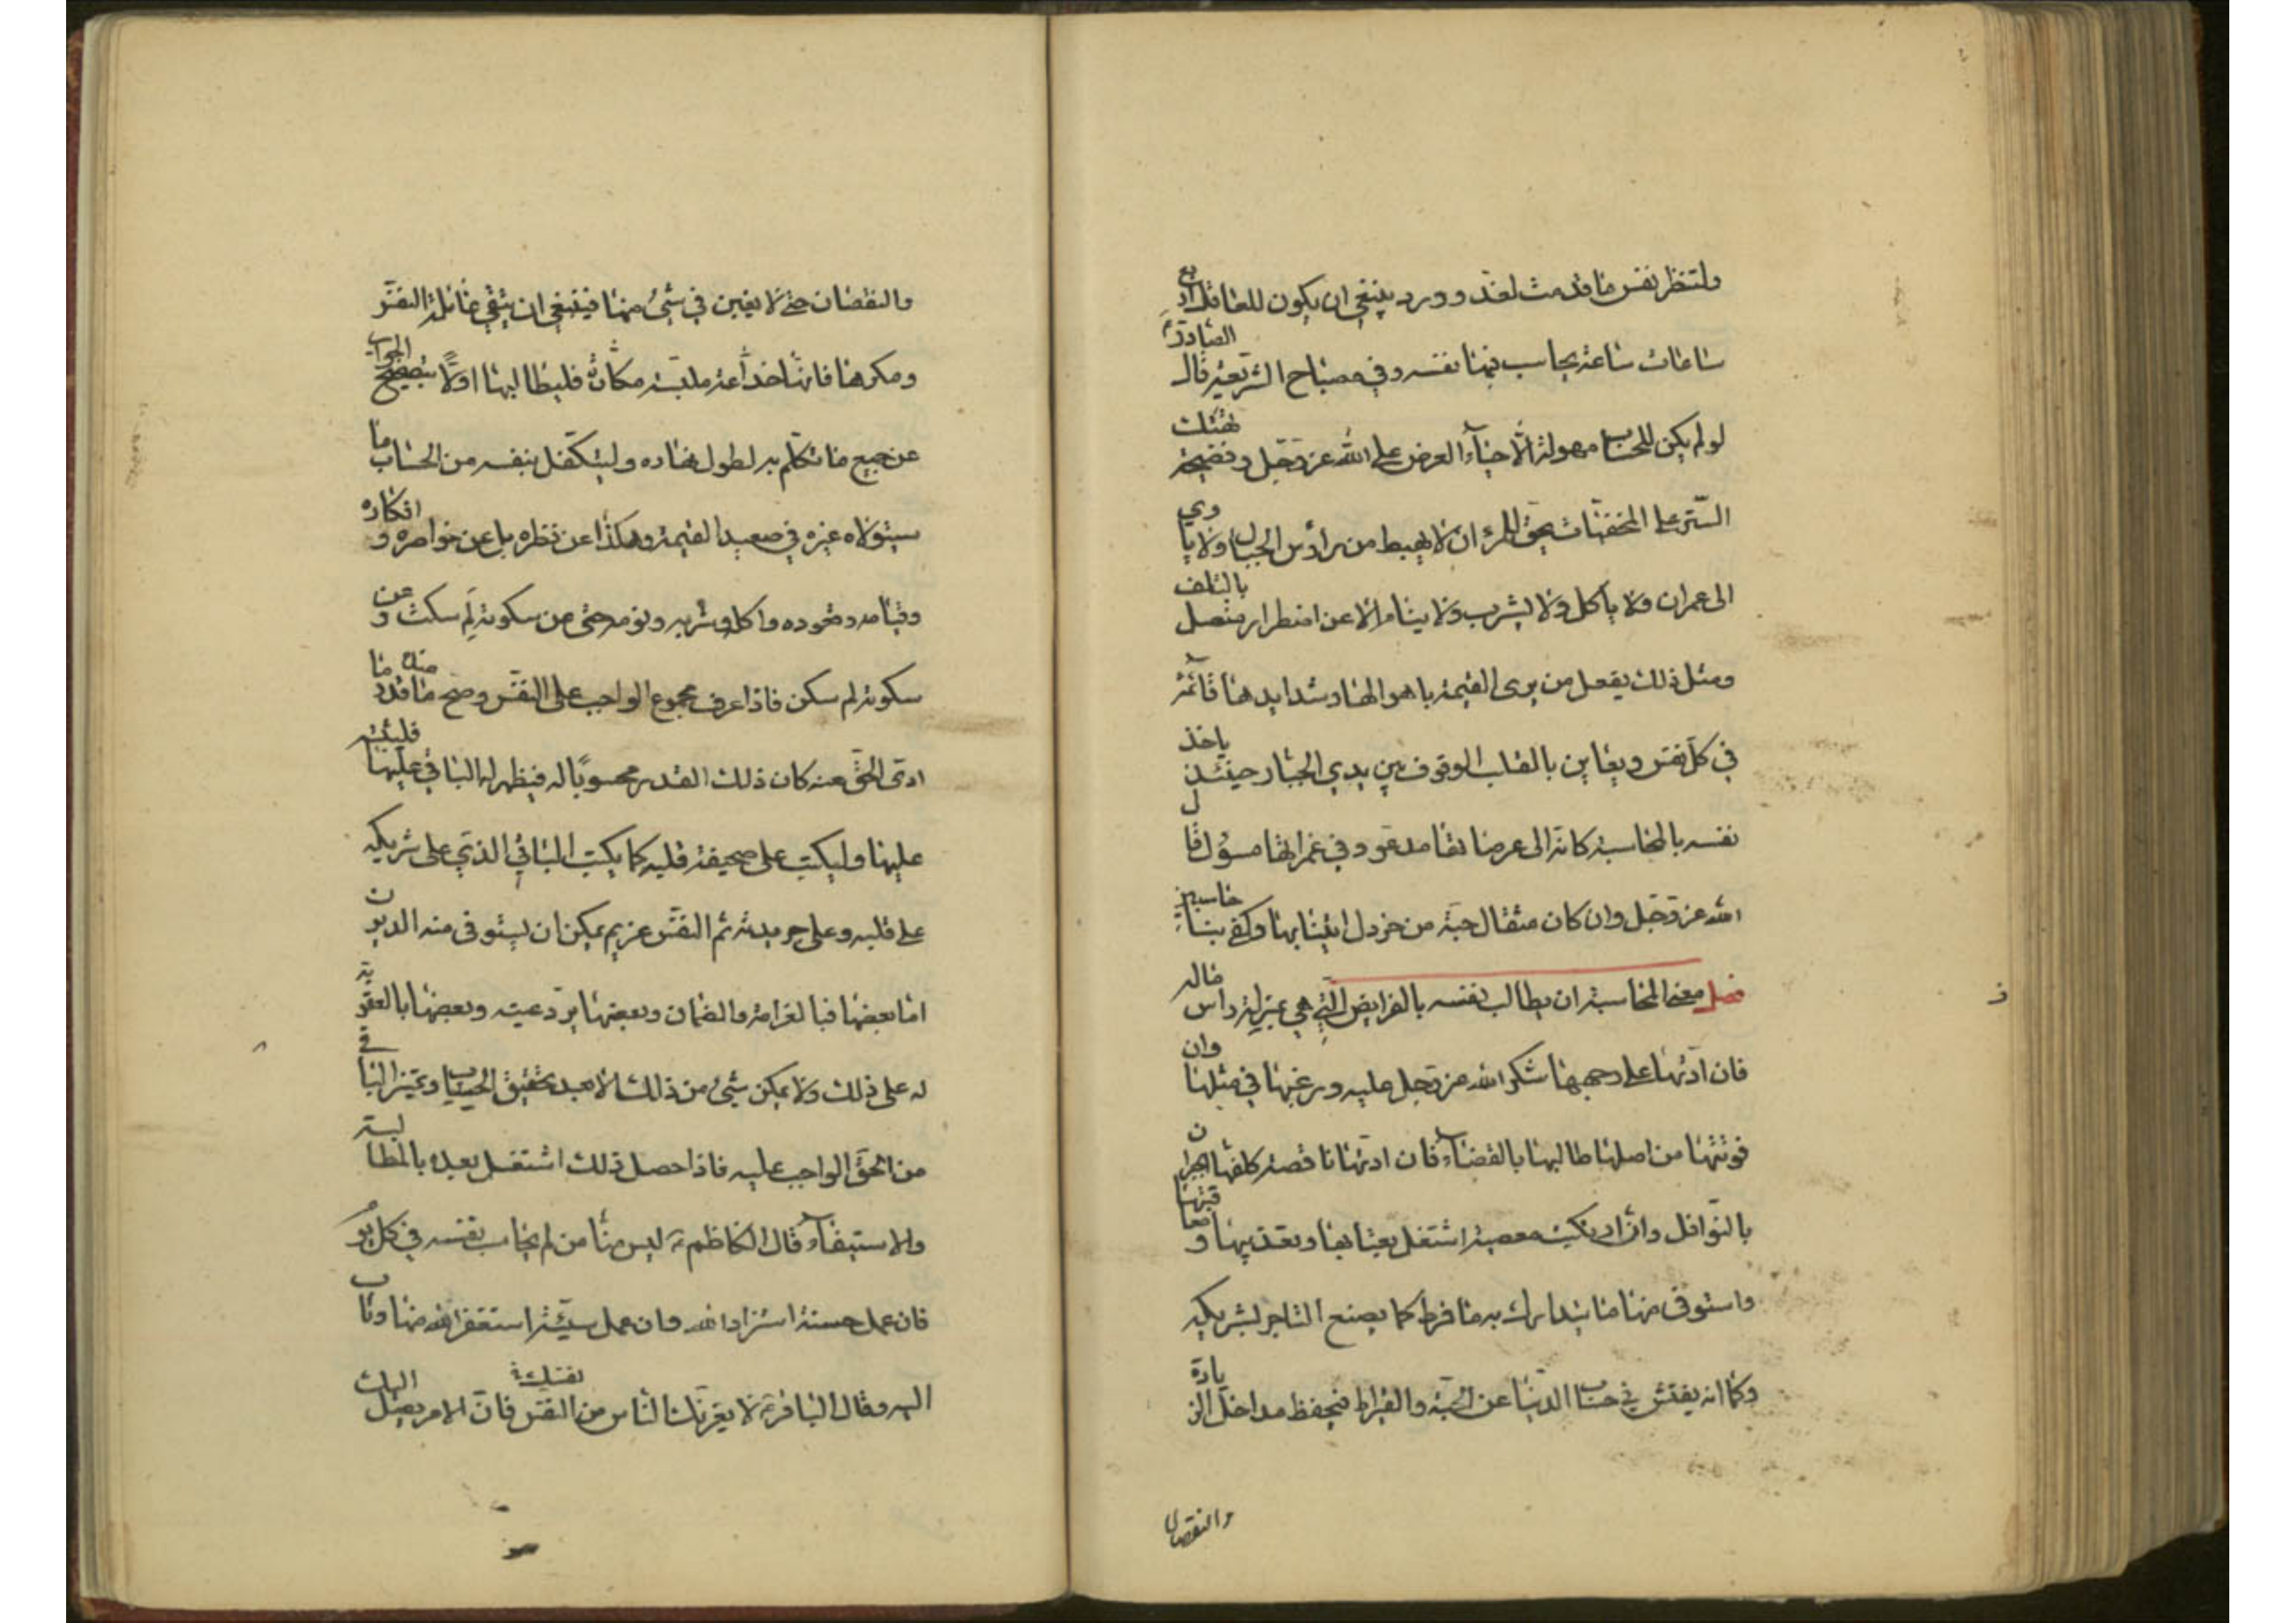 ولتنظر نفس ما قدمت لغد وورد ينبغي ان يكون للعاقل اربع
ساعات ساعة يحاسب فيها نفسه وفي مصباح الشريعة قال الصادق ع
لو لم يكن للحساب مهولة الا حياء العرض على الله عز وجل وفضيحة هتك
الستر على المخفيات يحق للمرء ان لا يهبط من رأس الجبال ولا ياوي
الى عمران ولا ياكل ولا يشرب ولا ينام الا عن اضطرار متصل بالتلف
ومثل ذلك يفعل من يرى القيمة باهوالها وشدايدها قائمة
في كل نفس ويعاين بالقلب الوقوف بين يدي الجبار حينئذ ياخذ
نفسه بالمحاسبة كانه الى عرصاتها مدعو وفي غمراتها مسؤل قال
الله عز وجل وان كان مثقال حبة من خردل اتينا بها وكفى بنا حاسبين
فصل معنى المحاسبة ان يطالب نفسه بالفرايض التي هي بمنزلة راس ماله
فان ادتها على وجهها شكر الله عز وجل عليه ورغبها في مثلها وان
فوتتها من اصلها طالبها بالقضاء فان ادتها ناقصة كلفها الجبران
بالنوافل وان ارتكبت معصية اشتغل بعتابها وتعذيبها و معاقبتها
واستوفى منها ما يتدارك به ما فرط كما يصنع التاجر بشريكه
وكما انه يفتش في حساب الدنيا عن الحبة والقيراط فيحفظ مداخل الزيادة
والنقصان
والنقصان حتى لا يغبن في شيء منها فينبغي ان يتقي غائلة النفس
ومكرها فانها خداعة ملبسة مكارة فليطالبها اولا بتصحيح الجواب
عن جميع ما تكلم به لطول نهاره وليتكفل بنفسه من الحساب ما
سيتولاه غيره في صعيد القيمة وهكذا عن نظره بل عن خواطره و افكاره
وقيامه وقعوده واكله وشربه ونومه حتى عن سكوته لم سكت و عن
سكونه لم سكن فاذا عرف مجموع الواجب على النفس وصح عنده ما قدر ما
ادى الحق عنه كان ذلك القدر محسوبا له فيظهر له الباقي عليها فليثبته
عليها وليكتب على صحيفة قلبه كما يكتب الباقي الذي على شريكه
على قلبه وعلى جريدته ثم النفس غريم يمكن ان يستوفى منه الديون
اما بعضها فبالغرامة والضمان وبعضها برد عينه وبعضها بالعقوبة
له على ذلك ولا يمكن شيء من ذلك الا بعد تحقيق الحساب وتميز الباقي
من الحق الواجب عليه فاذا حصل ذلك اشتغل بعده بالمطالبة
والاستيفاء قال الكاظم ع ليس منا من لم يحاسب نفسه في كل يوم
فان عمل حسنة استزاد الله وان عمل سيئة استغفر الله منها وتاب
اليه وقال الباقر ع لا يغرنك الناس من نفسك فان الامر يصل اليك